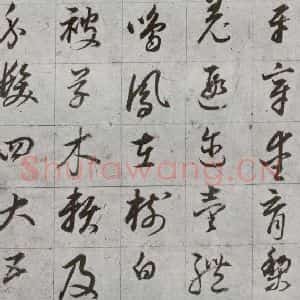 平章愛育黎
羌遐邇壹體
鳴鳳在樹白
被草木賴及
身髮四大五
Shufawang.CN